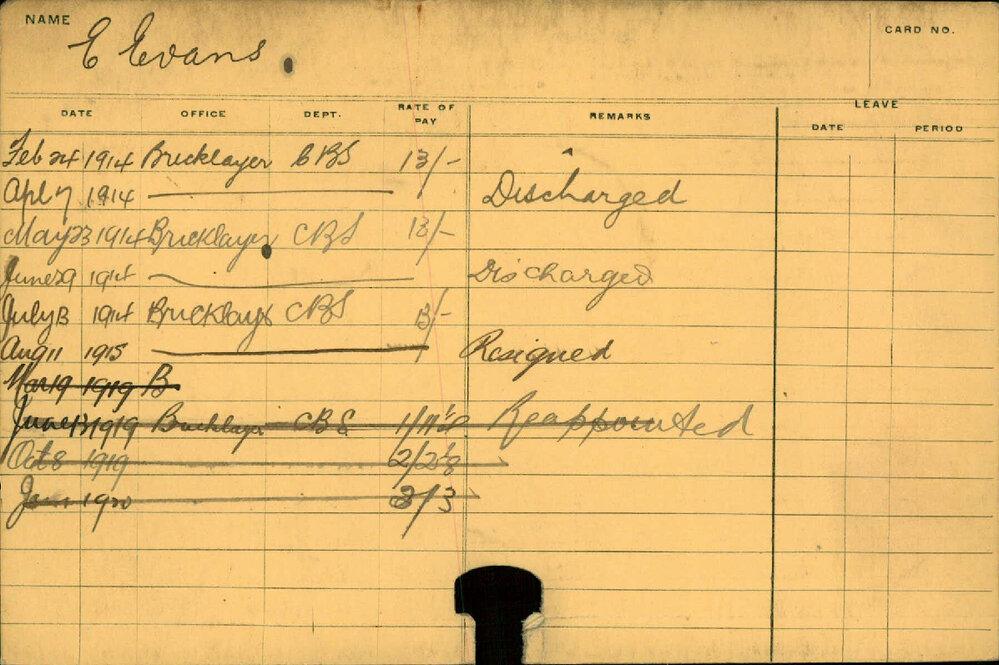 NAME
E Evans
CARD NO.
DATE OFFICE DEPT. RATE OF PAY REMARKS LEAVE
DATE PERIOD
Feb 24 1914 Bricklayer CBS 13/-
Apl 7 1914 Discharged
May 23 1914 Bricklayer CBS 13/-
June 29 1914 Discharged
July 13 1914 Bricklayer CBS 13/-
Aug 11 1915 Resigned
Mar 19 1919 B
June 13 1919 Bricklayer CBE Reappointed
Oct 8 1919
1920 2/3